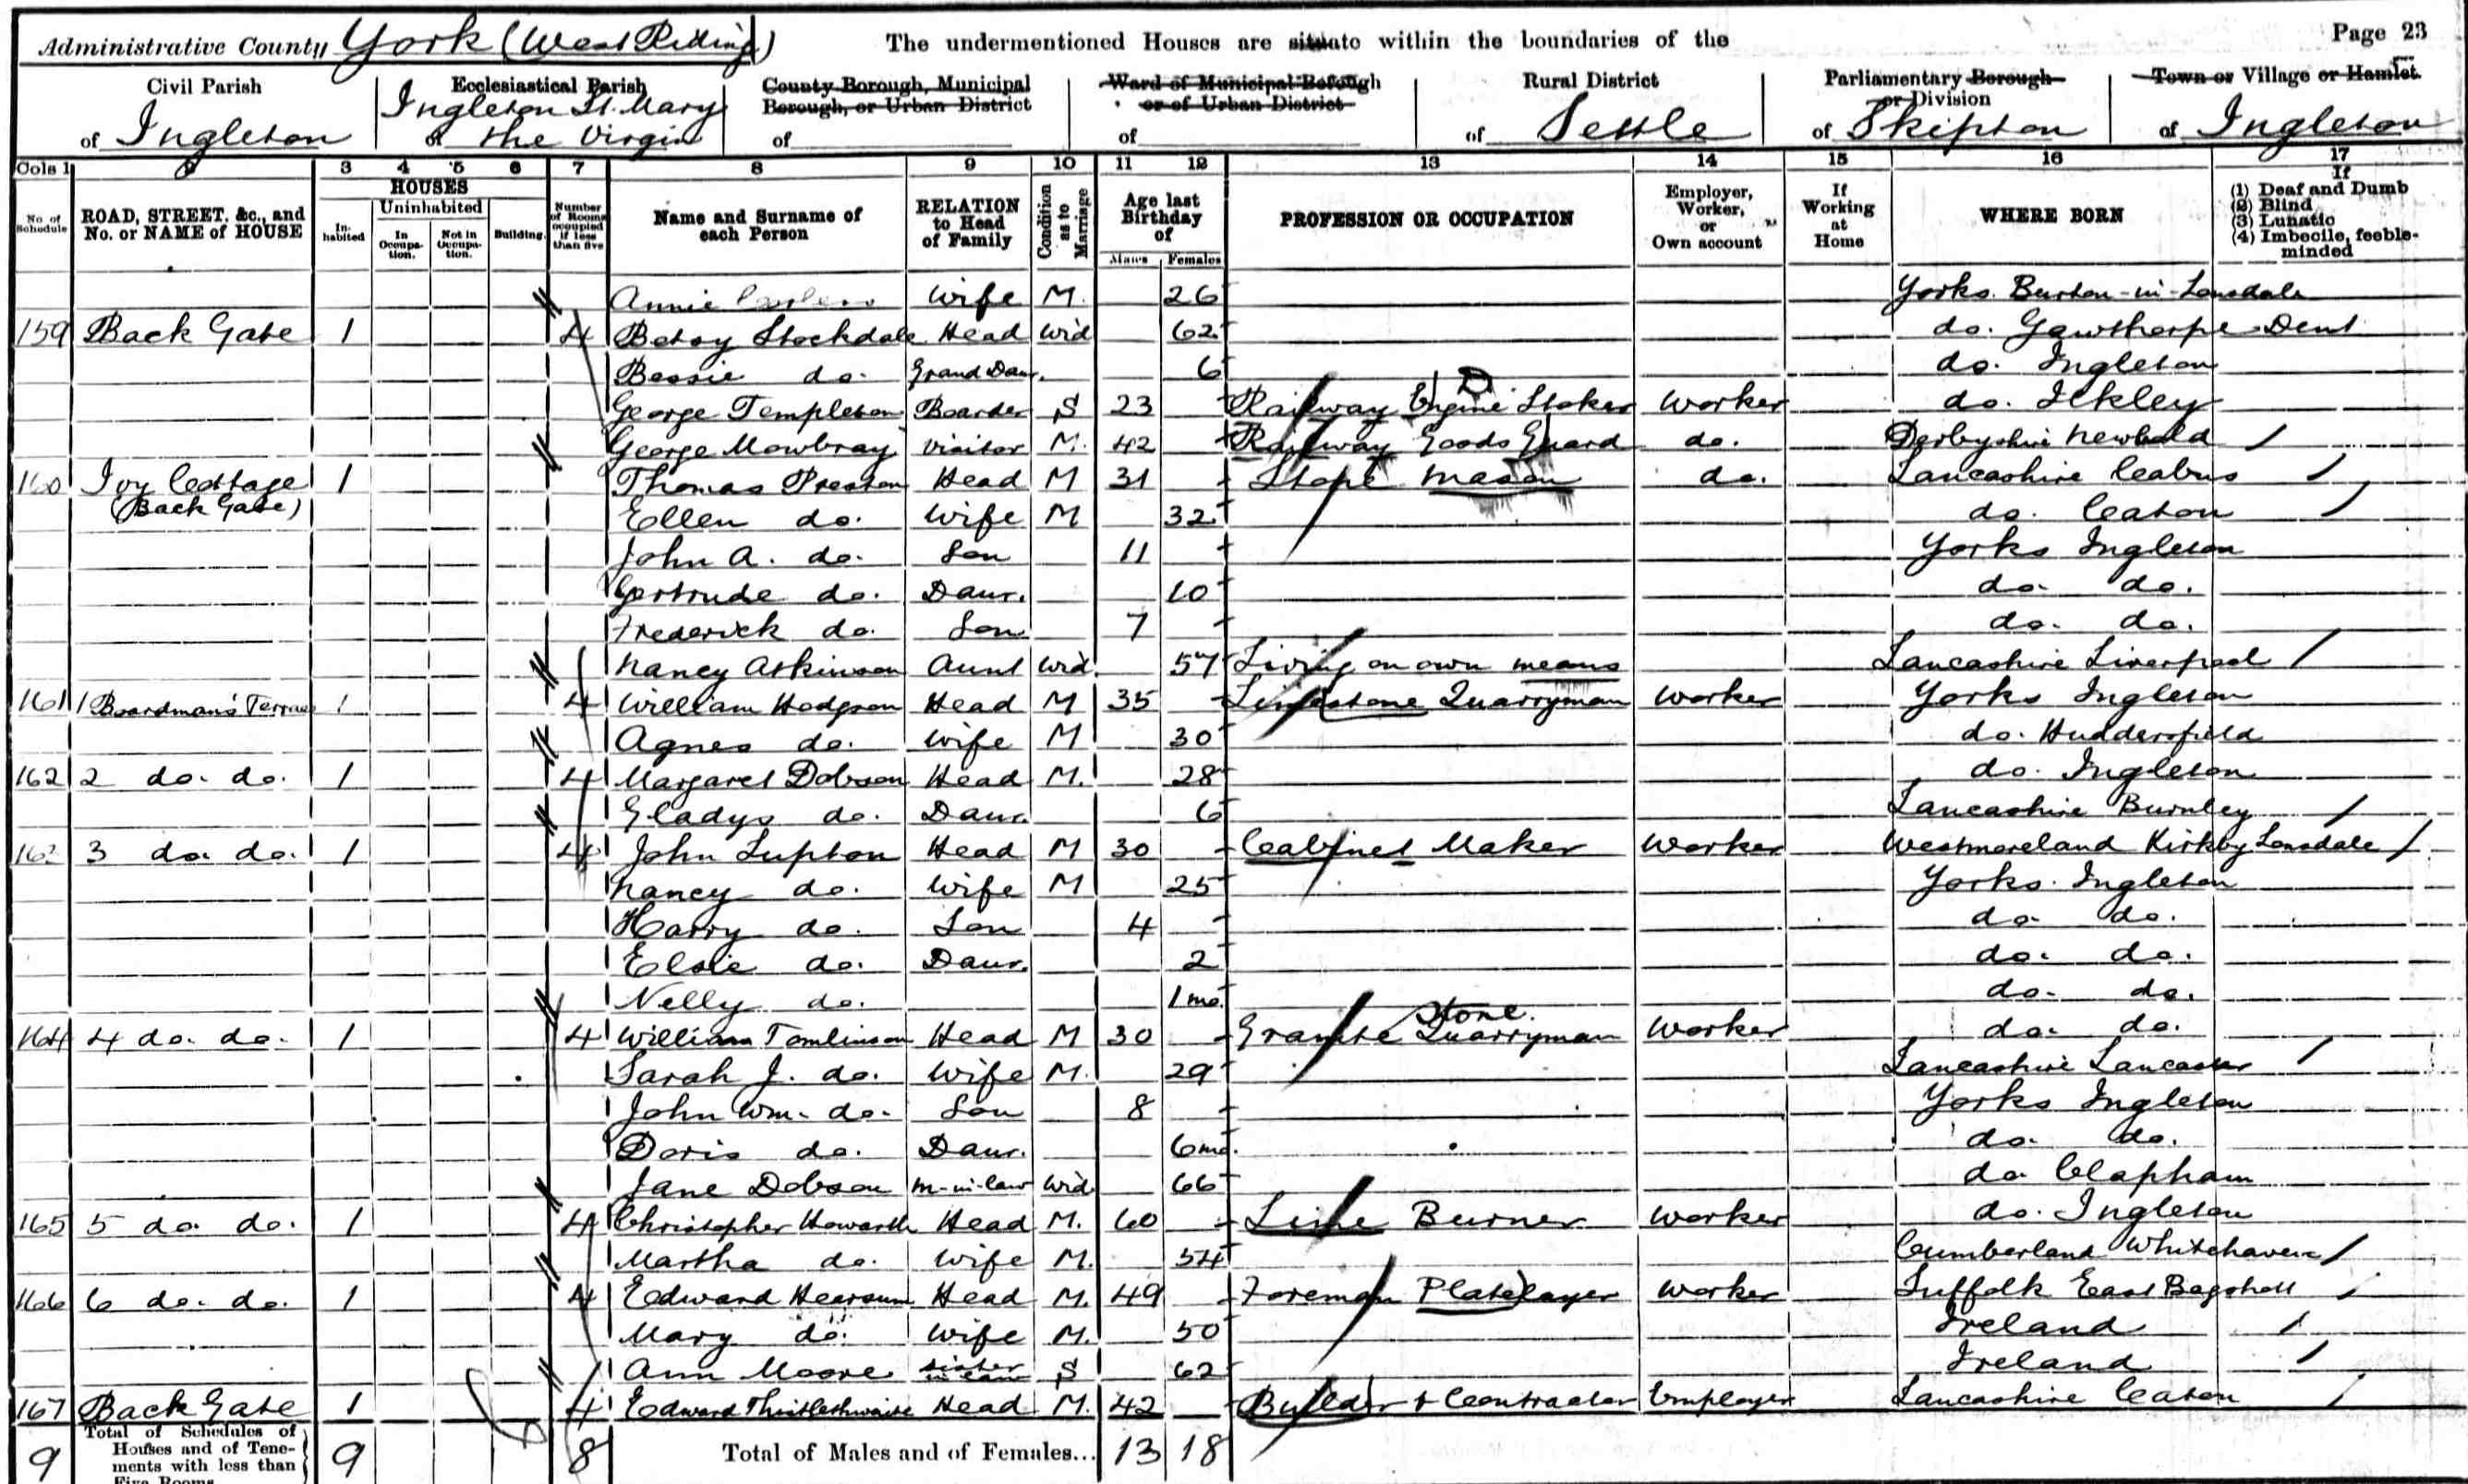 Administrative County York (West Riding) The undermentioned Houses are situate within the boundaries of the Page 23
Civil Parish Ecclesiastical Parish County Borough, Municipal Borough, or Urban District Ward of Municipal Borough or of Urban District Rural District Parliamentary Borough or Division Town or Village or Hamlet
of Ingleton Ingleton St. Mary of the Virgin of of of Settle of Skipton of Ingleton
Cols 1 2 3 4 5 6 7 8 9 10 11 12 13 14 15 16 17
No. of Schedule ROAD, STREET, &c., and No. or NAME of HOUSE HOUSES Inhabited Uninhabited In Occupation. Not in Occupation. Building. Number of Rooms occupied if less than five Name and Surname of each Person RELATION to Head of Family Condition as to Marriage Age last Birthday of Males Females PROFESSION OR OCCUPATION Employer, Worker, or Own account If Working at Home WHERE BORN If (1) Deaf and Dumb (2) Blind (3) Lunatic (4) Imbecile, feeble-minded
Annie Wife M. 26 Yorks. Burton-in-Lonsdale
159 Back Gate 1 4 Betsy Stockdale Head Wid 62 do. Gawthorpe Dent
Bessie do. Grand Daur. 6 do. Ingleton
George Templeton Boarder S 23 Railway Engine Stoker Worker do. Ilkley
George Mowbray Visitor M. 42 Railway Goods Guard do. Derbyshire Newbold
160 Ivy Cottage 1 Thomas Preston Head M 31 Stone Mason do. Lancashire Cabus
(Back Gate) Ellen do. Wife M 32 do. Caton
John A. do. Son 11 Yorks Ingleton
Gertrude do. Daur. 10 do. do.
Frederick do. Son 7 do. do.
Nancy Atkinson Aunt Wid. 57 Living on own means Lancashire Liverpool
161 1 Boardman's Terrace 1 4 William Hodgson Head M 35 Limestone Quarryman Worker Yorks Ingleton
Agnes do. Wife M 30 do. Huddersfield
162 2 do. do. 1 4 Margaret Dobson Head M. 28 do. Ingleton
Gladys do. Daur. 6 Lancashire Burnley
163 3 do. do. 1 4 John Lupton Head M 30 Cabinet Maker Worker Westmoreland Kirkby Lonsdale
Nancy do. Wife M 25 Yorks. Ingleton
Harry do. Son 4 do. do.
Elsie do. Daur. 2 do. do.
Nelly do. 1 mo. do. do.
164 4 do. do. 1 4 William Tomlinson Head M 30 Granite Stone Quarryman Worker do. do.
Sarah J. do. Wife M. 29 Lancashire Lancaster
John Wm. do. Son 8 Yorks Ingleton
Doris do. Daur. 6 mo. do. do.
Jane Dobson M-in-law Wid 66 do Clapham
165 5 do. do. 1 4 Christopher Howarth Head M. 60 Lime Burner Worker do. Ingleton
Martha do. Wife M. 54 Cumberland Whitehaven
166 6 do. do. 1 4 Edward Hearsum Head M. 49 Foreman Platelayer Worker Suffolk East
Mary do. Wife M. 50 Ireland
Ann Moore Sister in law S 62 Ireland
167 Back Gate 1 4 Edward Thistlethwaite Head M. 42 Builder & Contractor Employer Lancashire Caton
9 Total of Schedules of Houses and of Tenements with less than Five Rooms 9 8 Total of Males and of Females... 13 18